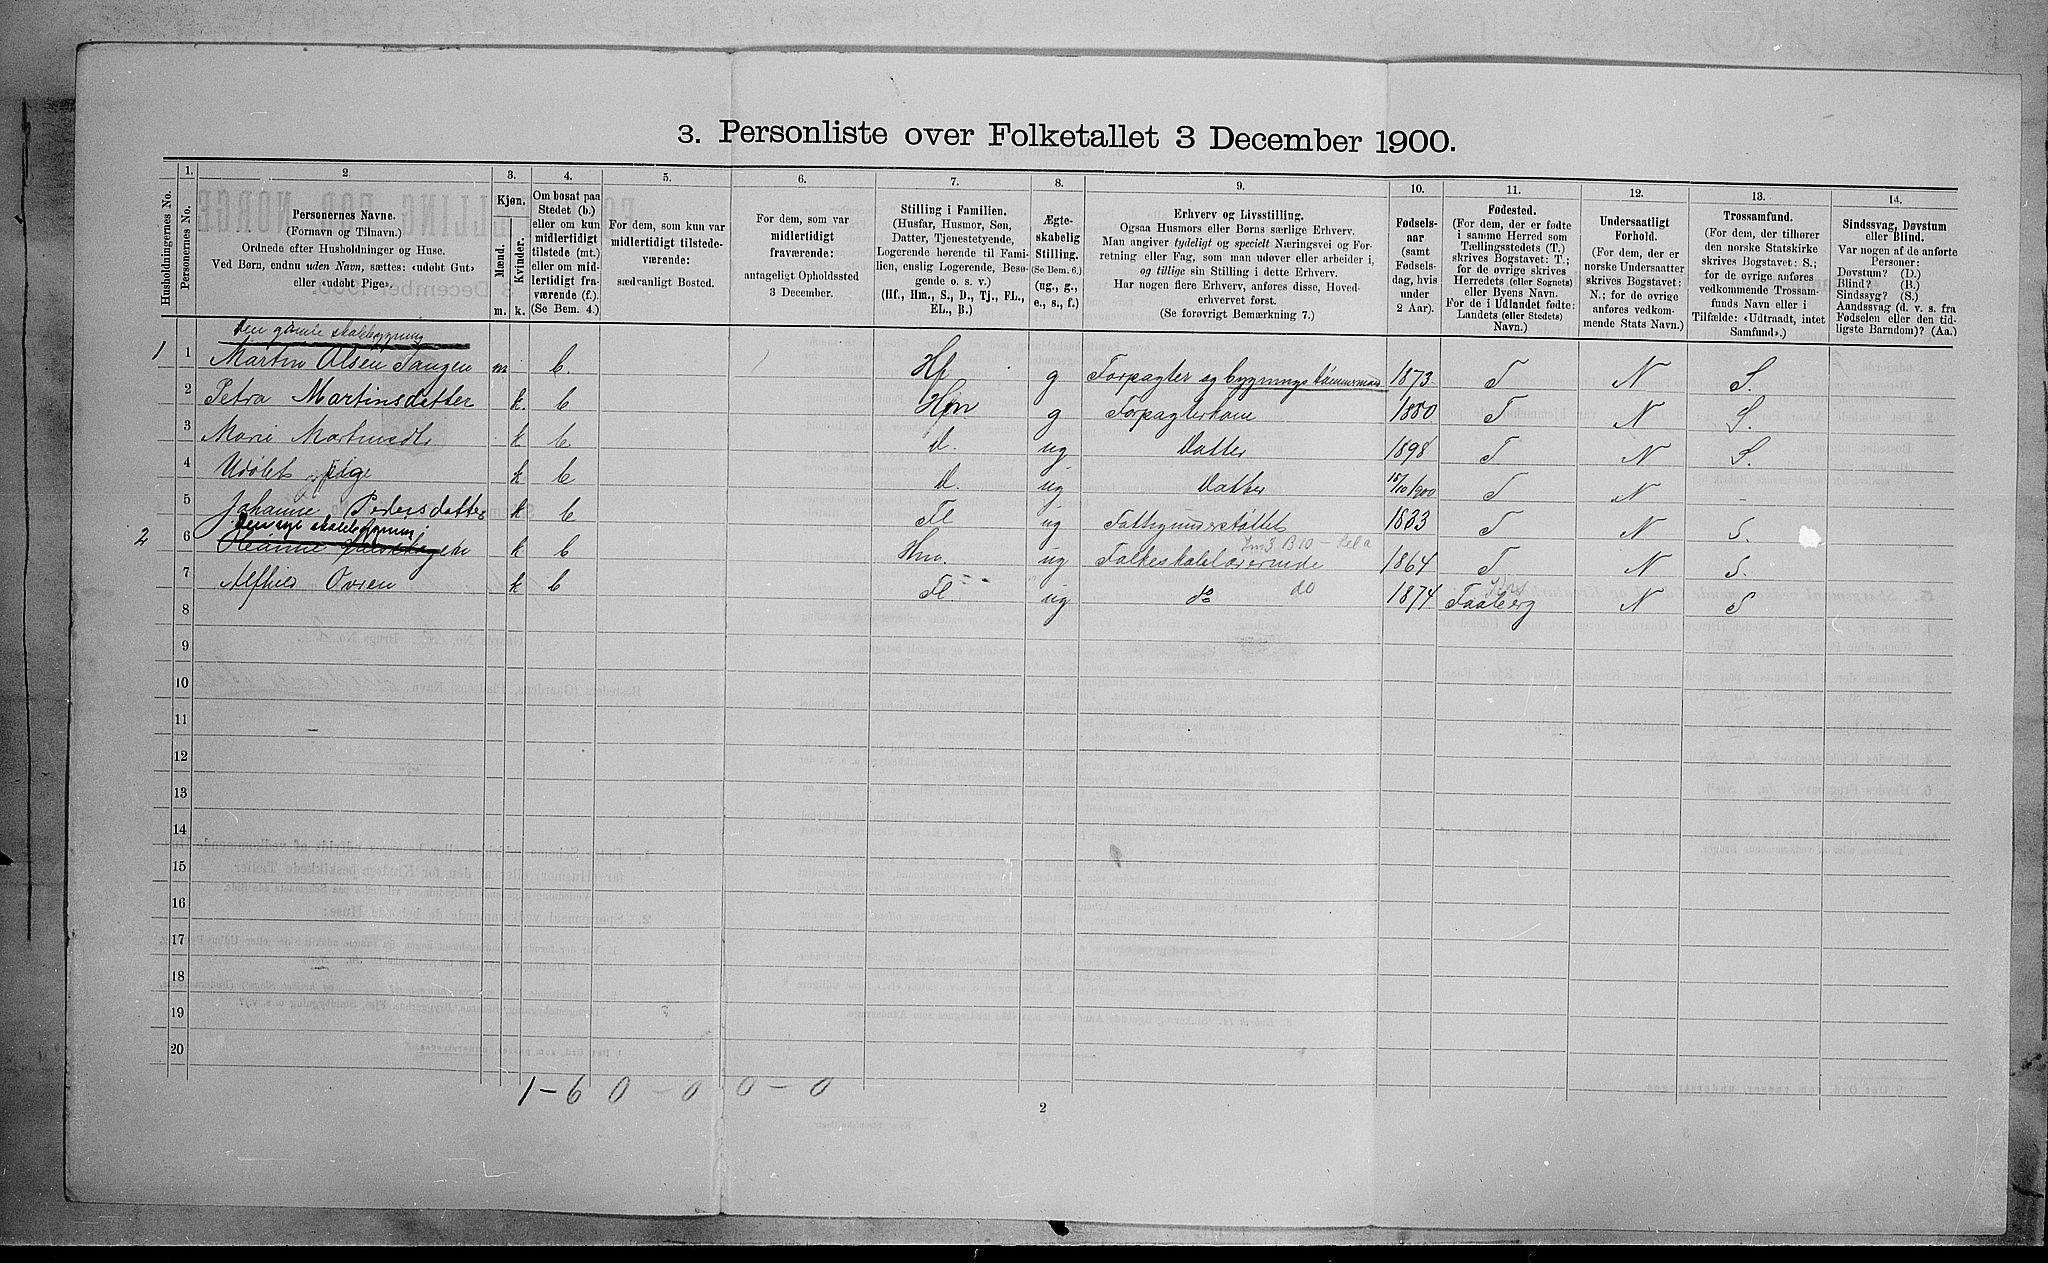 3. Personliste over Folketallet 3 December 1900.
Husholdningernes No.
1.
Personernes No.
2.
Personernes Navne.
(Fornavn og Tilnavn.)
Ordnede efter Husholdninger og Huse.
Ved Børn, endnu uden Navn, sættes: «udøbt Gut»
eller «udøbt Pige».
3.
Kjøn.
Mænd.
Kvinder.
m.
k.
4.
Om bosat paa
Stedet (b.)
eller om kun
midlertidigt
tilstede (mt.)
eller om mid-
lertidigt fra-
værende (f.).
(Se Bem. 4.)
5.
For dem, som kun var
midlertidigt tilstede-
værende:
sædvanligt Bosted.
6.
For dem, som var
midlertidigt
fraværende:
antageligt Opholdssted
3 December.
7.
Stilling i Familien.
(Husfar, Husmor, Søn,
Datter, Tjenestetyende,
Logerende hørende til Fami-
lien, enslig Logerende, Besø-
gende o. s. v.)
(Hf., Hm., S., D., Tj., FL.,
EL., B.)
8.
Ægte-
skabelig
Stilling.
(Se Bem. 6.)
(ug., g.,
e., s., f.)
9.
Erhverv og Livsstilling.
Ogsaa Husmors eller Børns særlige Erhverv.
Man angiver tydeligt og specielt Næringsvei og For-
retning eller Fag, som man udøver eller arbeider i,
og tillige sin Stilling i dette Erhverv.
Har nogen flere Erhverv, anføres disse, Hoved-
erhvervet først.
(Se forøvrigt Bemærkning 7.)
10.
Fødsels-
aar
(samt
Fødsels-
dag, hvis
under
2 Aar).
11.
Fødested.
(For dem, der er fødte
i samme Herred som
Tællingsstedets (T.)
skrives Bogstavet: T.;
for de øvrige skrives
Herredets (eller Sognets)
eller Byens Navn.
For de i Udlandet fødte:
Landets (eller Stedets)
Navn.)
12.
Undersaatligt
Forhold.
(For dem, der er
norske Undersaatter
skrives Bogstavet:
N.; for de øvrige
anføres vedkom-
mende Stats Navn.)
13.
Trossamfund.
(For dem, der tilhører
den norske Statskirke
skrives Bogstavet: S.;
for de øvrige anføres
vedkommende Trossam-
funds Navn eller i
Tilfælde: «Udtraadt, intet
Samfund».)
14.
Sindssvag, Døvstum
eller Blind.
Var nogen af de anførte
Personer:
Døvstum? (D.)
Blind? (B.)
Sindssyg? (S.)
Aandssvag (d. v. s. fra
Fødselen eller den tid-
ligste Barndom)? (Aa.)
Den gamle skolebygning
1 1 Martin Olsen Tangen m b. Hf g Forpagter og bygningstømmermand 1873 T N S.
2 Petra Martinsdatter k. b Hm g Forpagterkone 1880 T N S.
3 Marie Martinsdtr k b D. ug Datter 1898 T N S.
4 Udøbt pige k b D. ug Datter 15/10 1900 T N -
5 Johanne Pedersdatter k b Fl ug Fattigunderstøttet 1833 T N S.
Den nye skolebygning
2 6 k b Hm. ug Folkeskolelærerinde 1864 T N S.
7 Alfhild Owren k b Fl ug do do 1874 Faaberg N S
8
9
10
11
12
13
14
15
16
17
18
19
20
1-6 0 - 0 0 - 0
2